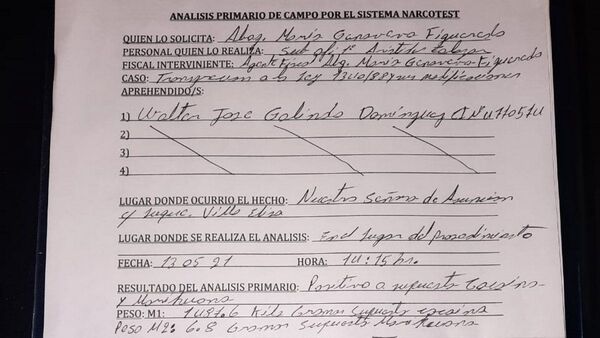 ANALISIS PRIMARIO DE CAMPO POR EL SISTEMA NARCOTEST
QUIEN LO SOLICITA: Abog. María Genoveva Figueredo
PERSONAL QUIEN LO REALIZA: Sub Ofi. 1°
FISCAL INTERVINIENTE: Agente Fiscal Abg. María Genoveva Figueredo
CASO: Transgresion a la Ley 1340/88 y sus modificaciones
APREHENDIDO/S:
1) Walter Jose Galindo Domínguez CI N°
2)
3)
4)
LUGAR DONDE OCURRIO EL HECHO: Nuestra Señora de Asuncion
y Luque. Villa Elisa
LUGAR DONDE SE REALIZA EL ANALISIS: En el lugar del procedimiento
FECHA: 13 05 21 HORA: 14:15 hs.
RESULTADO DEL ANALISIS PRIMARIO: Positivo a supuesta Cocaina
y Marihuana
PESO: M1: Kilo Gramos Supuesta cocaina
Peso M2: 6.8 Gramos Supuesta Marihuana